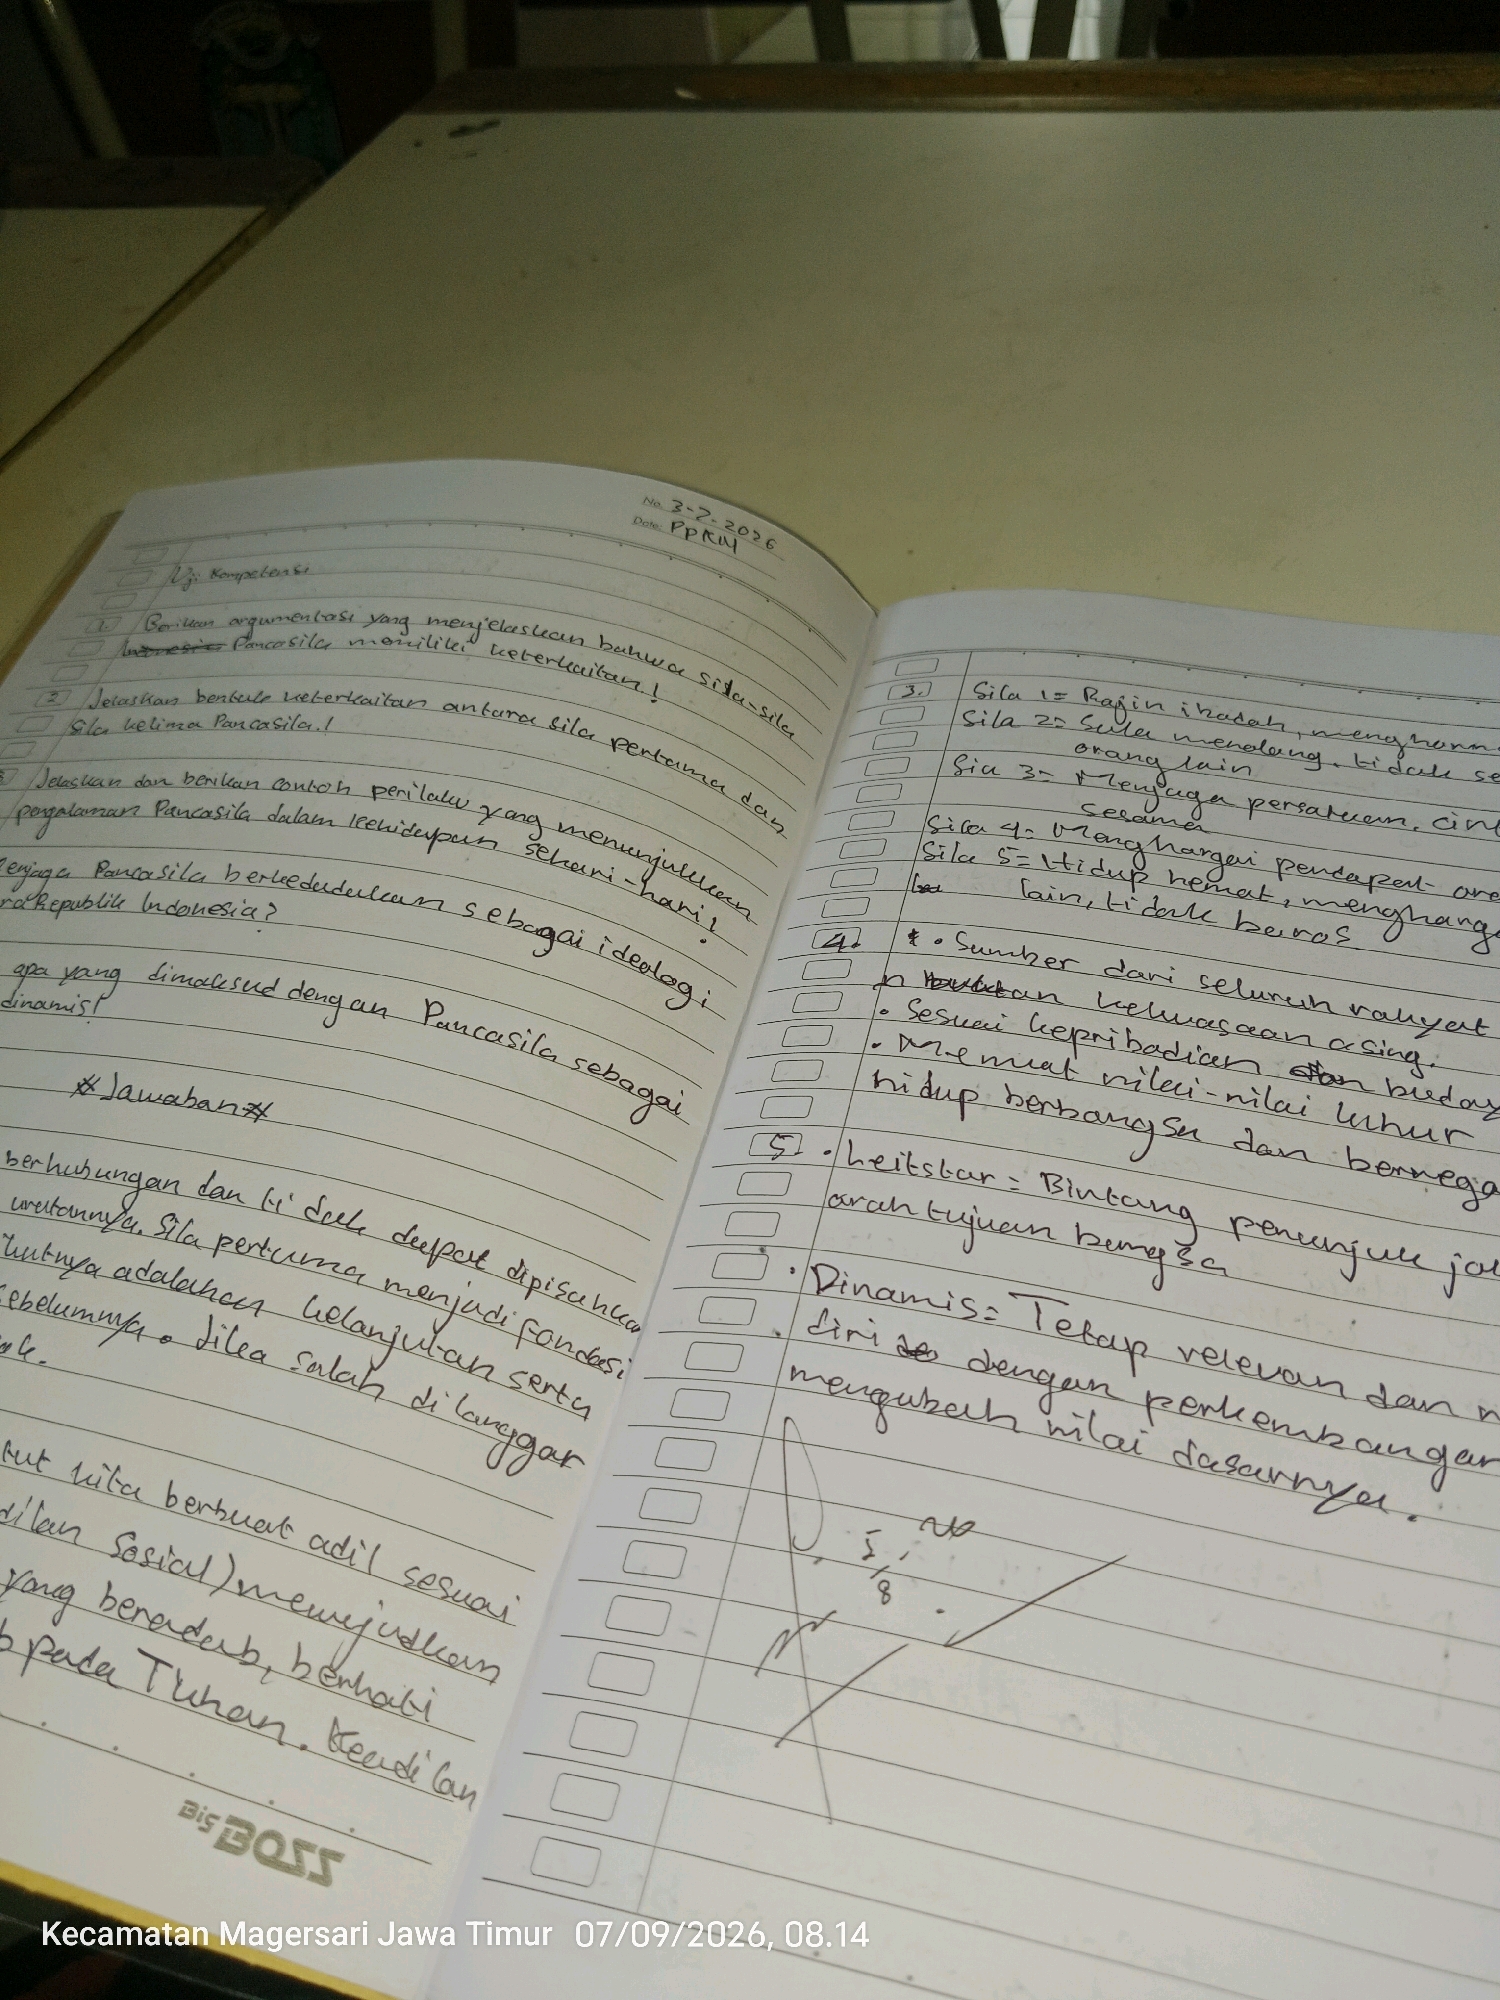 No. 3-7-2026
Date: PPKN
Uji Kompetensi
1. Berikan argumentasi yang menjelaskan bahwa sila-sila
Pancasila memiliki keterkaitan!
2 Jelaskan bentuk keterkaitan antara sila pertama dan
sila kelima Pancasila.!
Jelaskan dan berikan contoh perilaku yang menunjukkan
pengalaman Pancasila dalam kehidupan sehari-hari!
engaga Pancasila berkedudukan sebagai ideologi
ra Republik Indonesia?
apa yang dimaksud dengan Pancasila sebagai
dinamis!
*Jawaban*
berhubungan dan tidak dapat dipisahkan
urutannya. Sila pertama menjadi fondasi
kutnya adalahan kelanjutan serta
sebelumnya. Jika salah di langgar
ak.
tut kita berbuat adil sesuai
dilan Sosial) mewujudkan
yang beradab, berhati
b pada Tuhan. Keadilan
Big BOSS
3. Sila 1= Rajin ibadah, menghorm
Sila 2= Suka menolong, tidak se
orang lain
Sia 3= Menjaga persatuan, cint
sesama
Sila 4= Menghargai pendapat ora
Sila 5= Hidup hemat, mengharga
lain, tidak boros
4. • Sumber dari seluruh rakyat
n kekuasaan asing.
• Sesuai kepribadian buday
• Memuat nilai-nilai luhur
hidup berbangsa dan bernega
5. • Leitstar = Bintang penunjuk jal
arah tujuan bangsa
• Dinamis= Tetap relevan dan m
diri dengan perkembangan
mengubah nilai dasarnya.
5/8
Kecamatan Magersari Jawa Timur 07/09/2026, 08.14